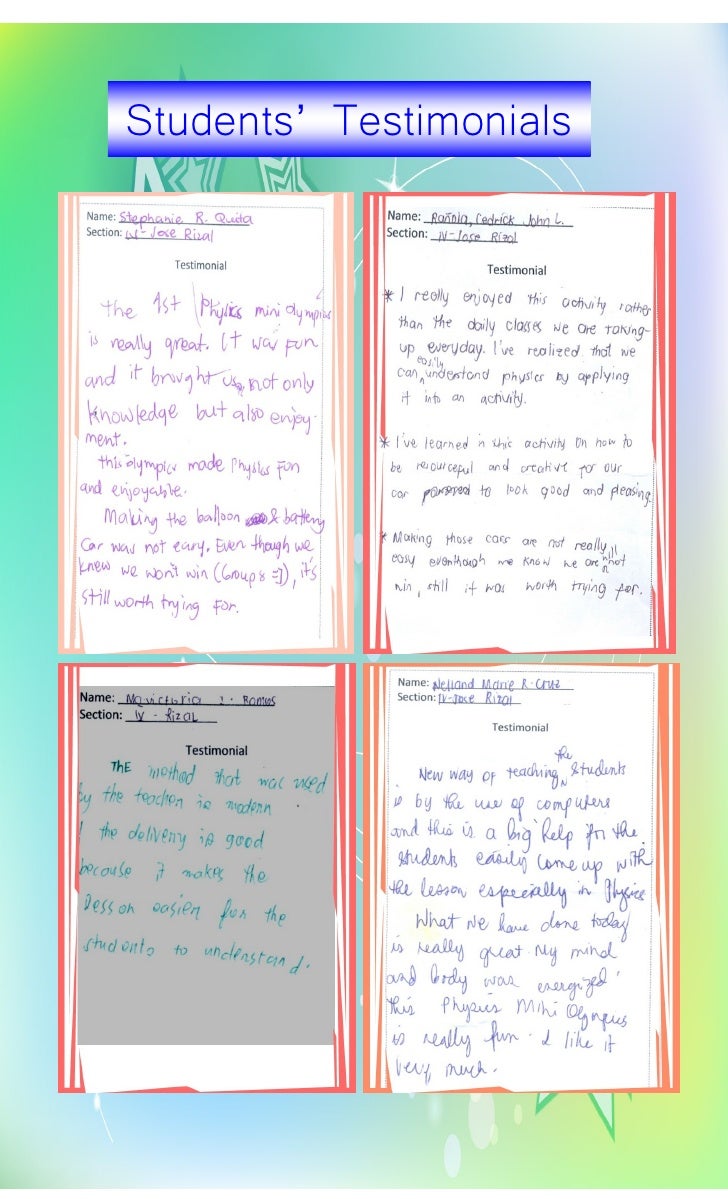 Students' Testimonials
Name: Stephanie R. Quita
Section: IV-Jose Rizal
Testimonial
the 1st Physics mini olympics
is really great. It was fun
and it brought us not only
knowledge but also enjoy-
ment.
this olympics made Physics Fun
and enjoyable.
Making the balloon & battery
car was not easy. Even though we
knew we won't win (Group 8 =]), it's
still worth trying for.
Name: Rañola, Cedrick John L.
Section: IV-Jose Rizal
Testimonial
* I really enjoyed this activity rather
than the daily classes we are taking-
up everyday. I've realized that we
can easily understand physics by applying
it into an activity.
* I've learned in this activity on how to
be resourceful and creative for our
car powered to look good and pleasing
* Making those cars are not really
easy eventhough we know we are not
win, still it was worth trying for.
Name: Ma. Victoria Ramos
Section: IV - Rizal
Testimonial
The method that was used
by the teacher is modern
the delivery is good
because it makes the
lesson easier for the
students to understand.
Name: Nelland Marie R. Cruz
Section: IV-Jose Rizal
Testimonial
New way of teaching the students
is by the use of computers
and this is a big help for the
students easily come up with
the lesson especially in Physics
What we have done today
is really great. My mind
and body was energized.
this Physics Mini Olympics
is really fun. I like it
very much.